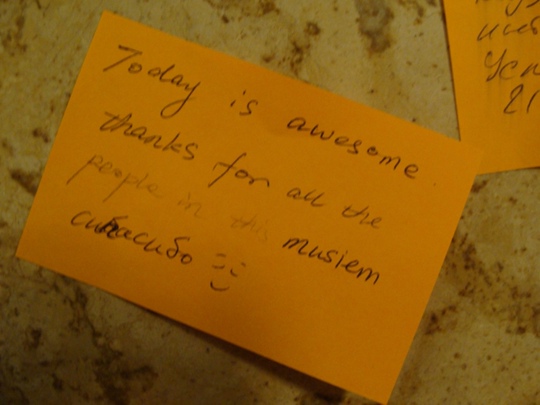 Today is awesome
thanks for all the
people in this musiem
спасибо
инт
Уст
21